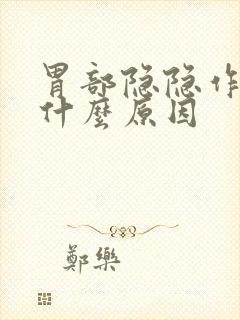 胃部隐隐作
什麼原因
鄭樂